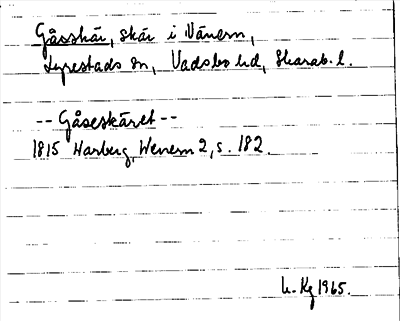 Gåsskär, skär i Vänern,
Lyrestads sn, Vadsbo hd, Skarab. l.
-- Gåseskäret --
1815 Warberg, Wenern 2, s. 182.
Kg 1965.